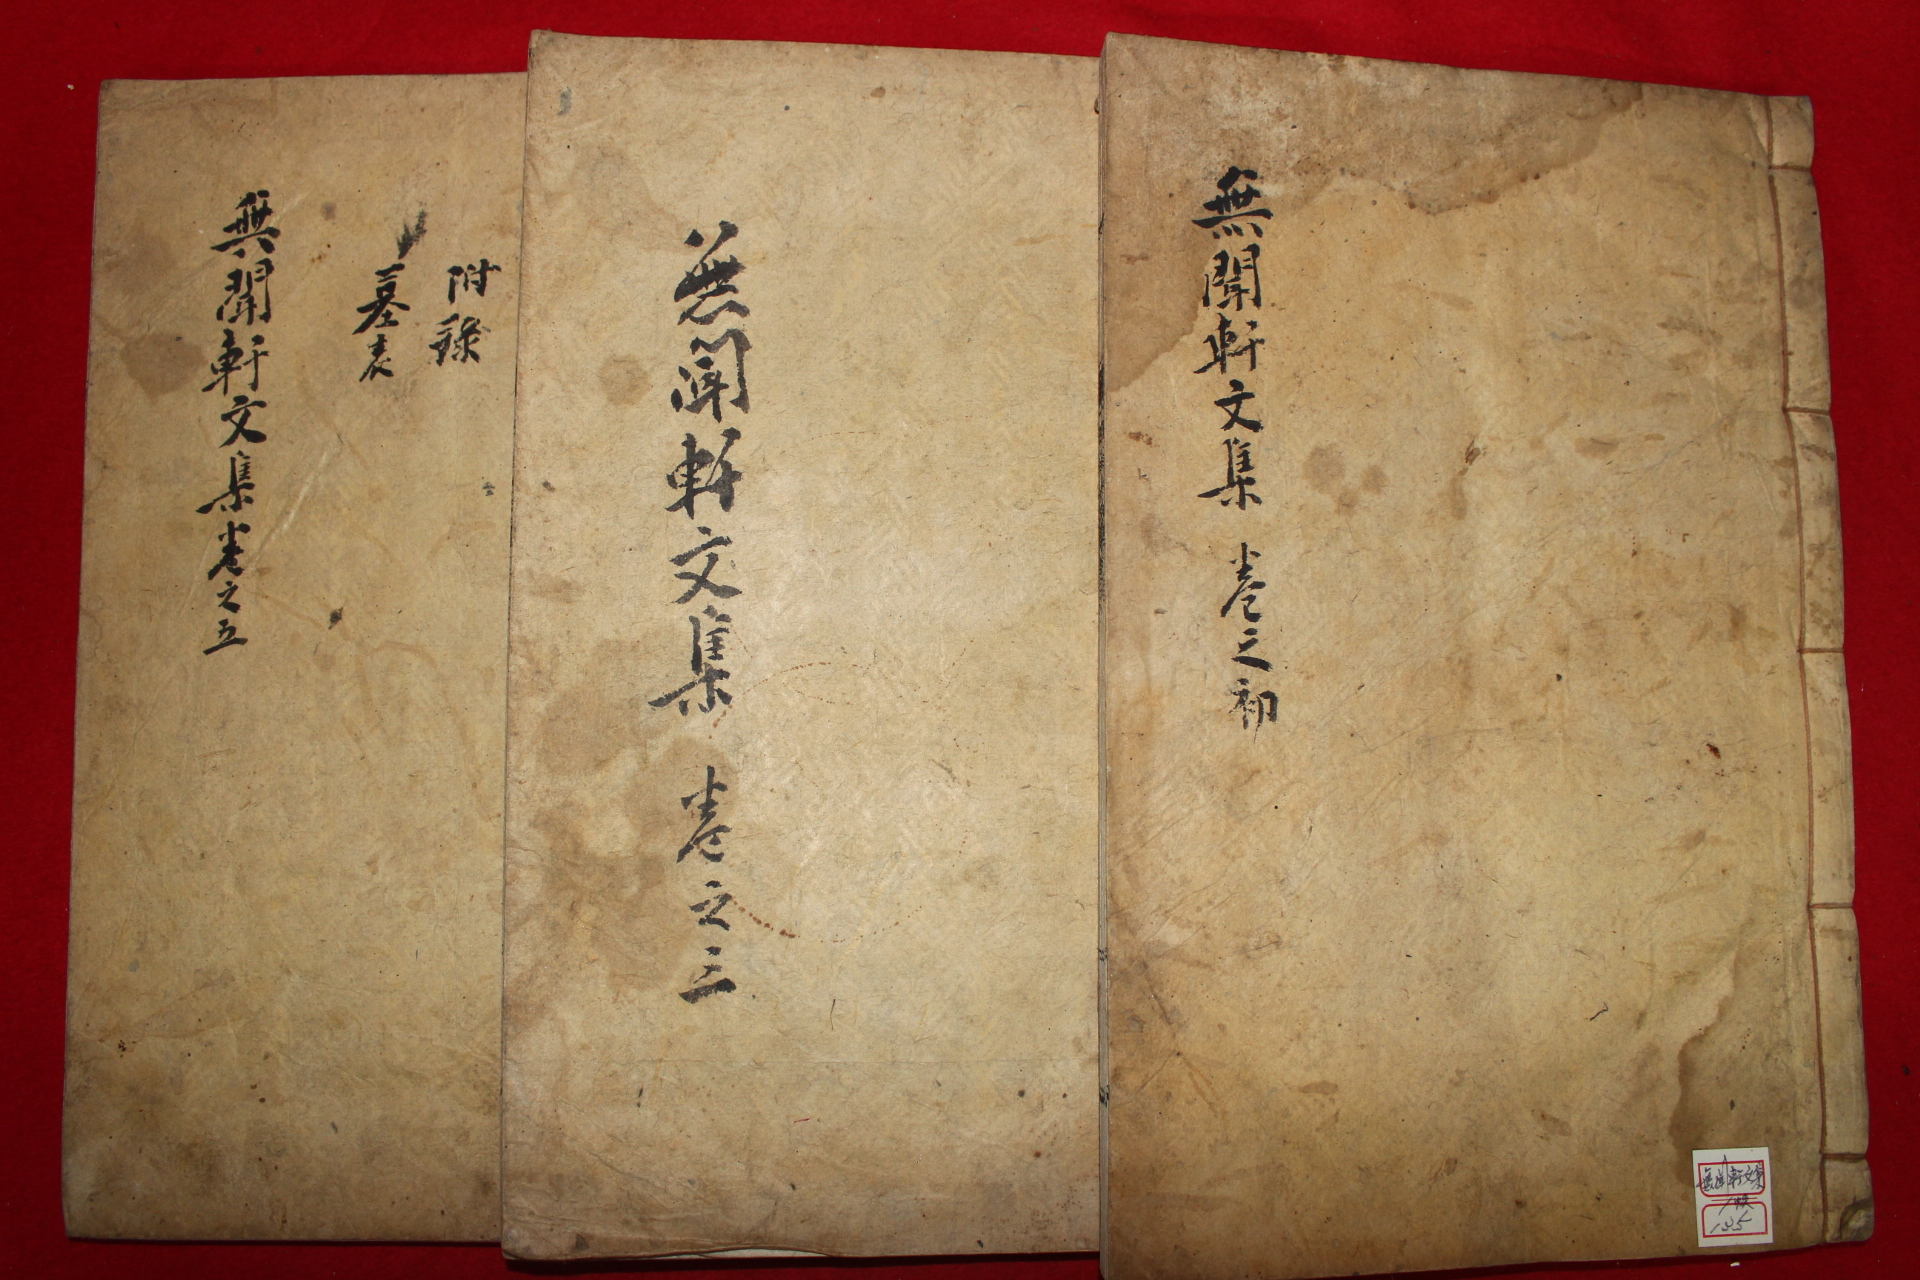 無聞軒文集 卷之初
無聞軒文集 卷之三
附錄
墓表
無聞軒文集卷之五
無聞軒文集
135